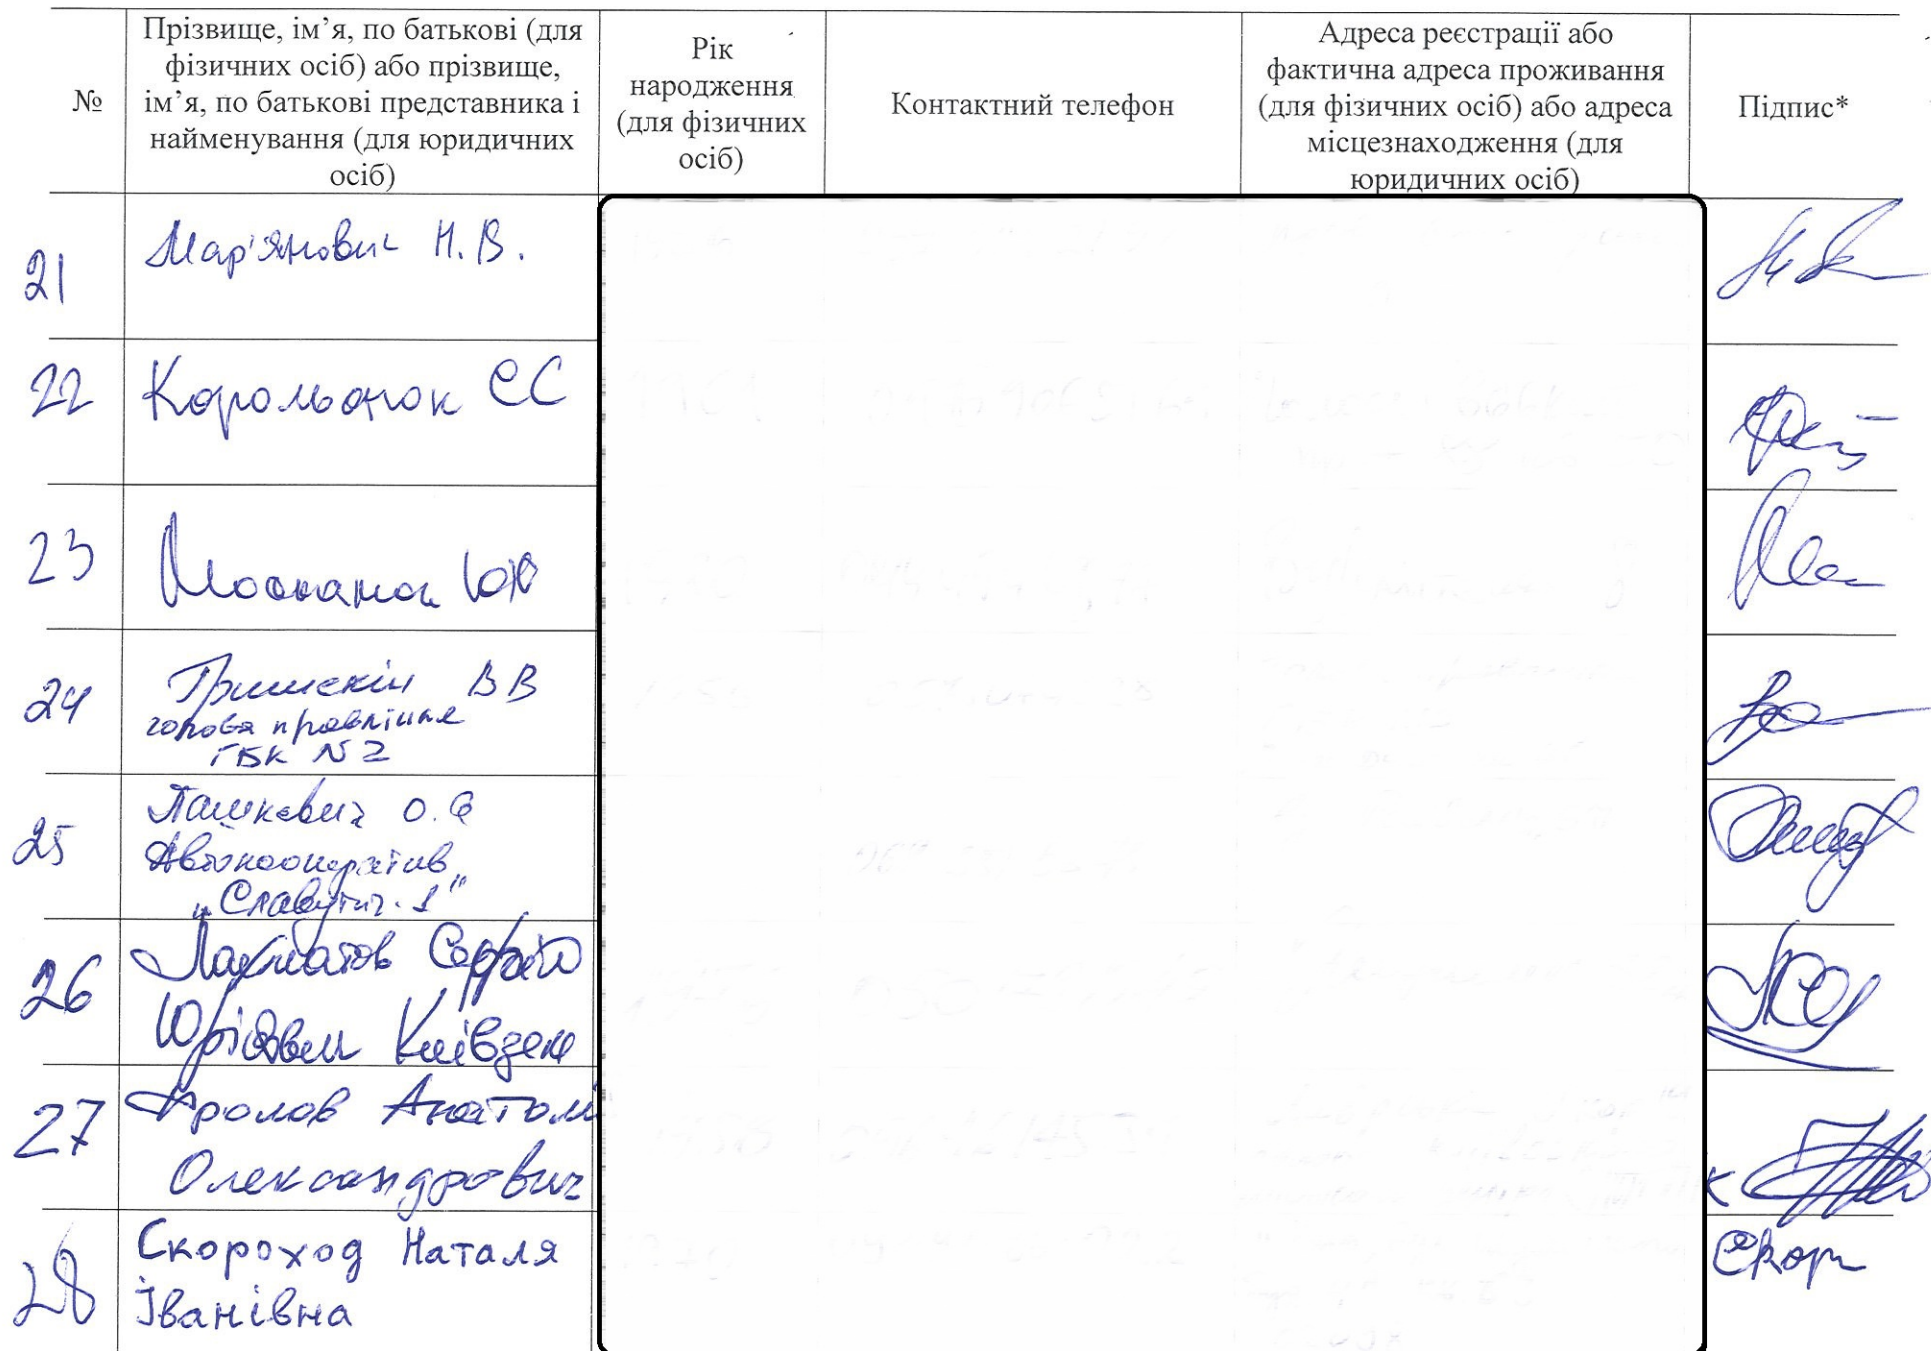 №
Прізвище, ім’я, по батькові (для
фізичних осіб) або прізвище,
ім’я, по батькові представника і
найменування (для юридичних
осіб)
Рік
народження
(для фізичних
осіб)
Контактний телефон
Адреса реєстрації або
фактична адреса проживання
(для фізичних осіб) або адреса
місцезнаходження (для
юридичних осіб)
Підпис*
21
Мар'янович Н.В.
22
Корольонок ЄС
23
24
ВВ
голова правління
ГБК N 2
25
Пашкевич О.Є
Автокооператив
„Славутич-1"
26
Лахматов Сергій
Юрійович
27
Фролов Анатолі
Олександрович
28
Скороход Наталя
Іванівна
Скор